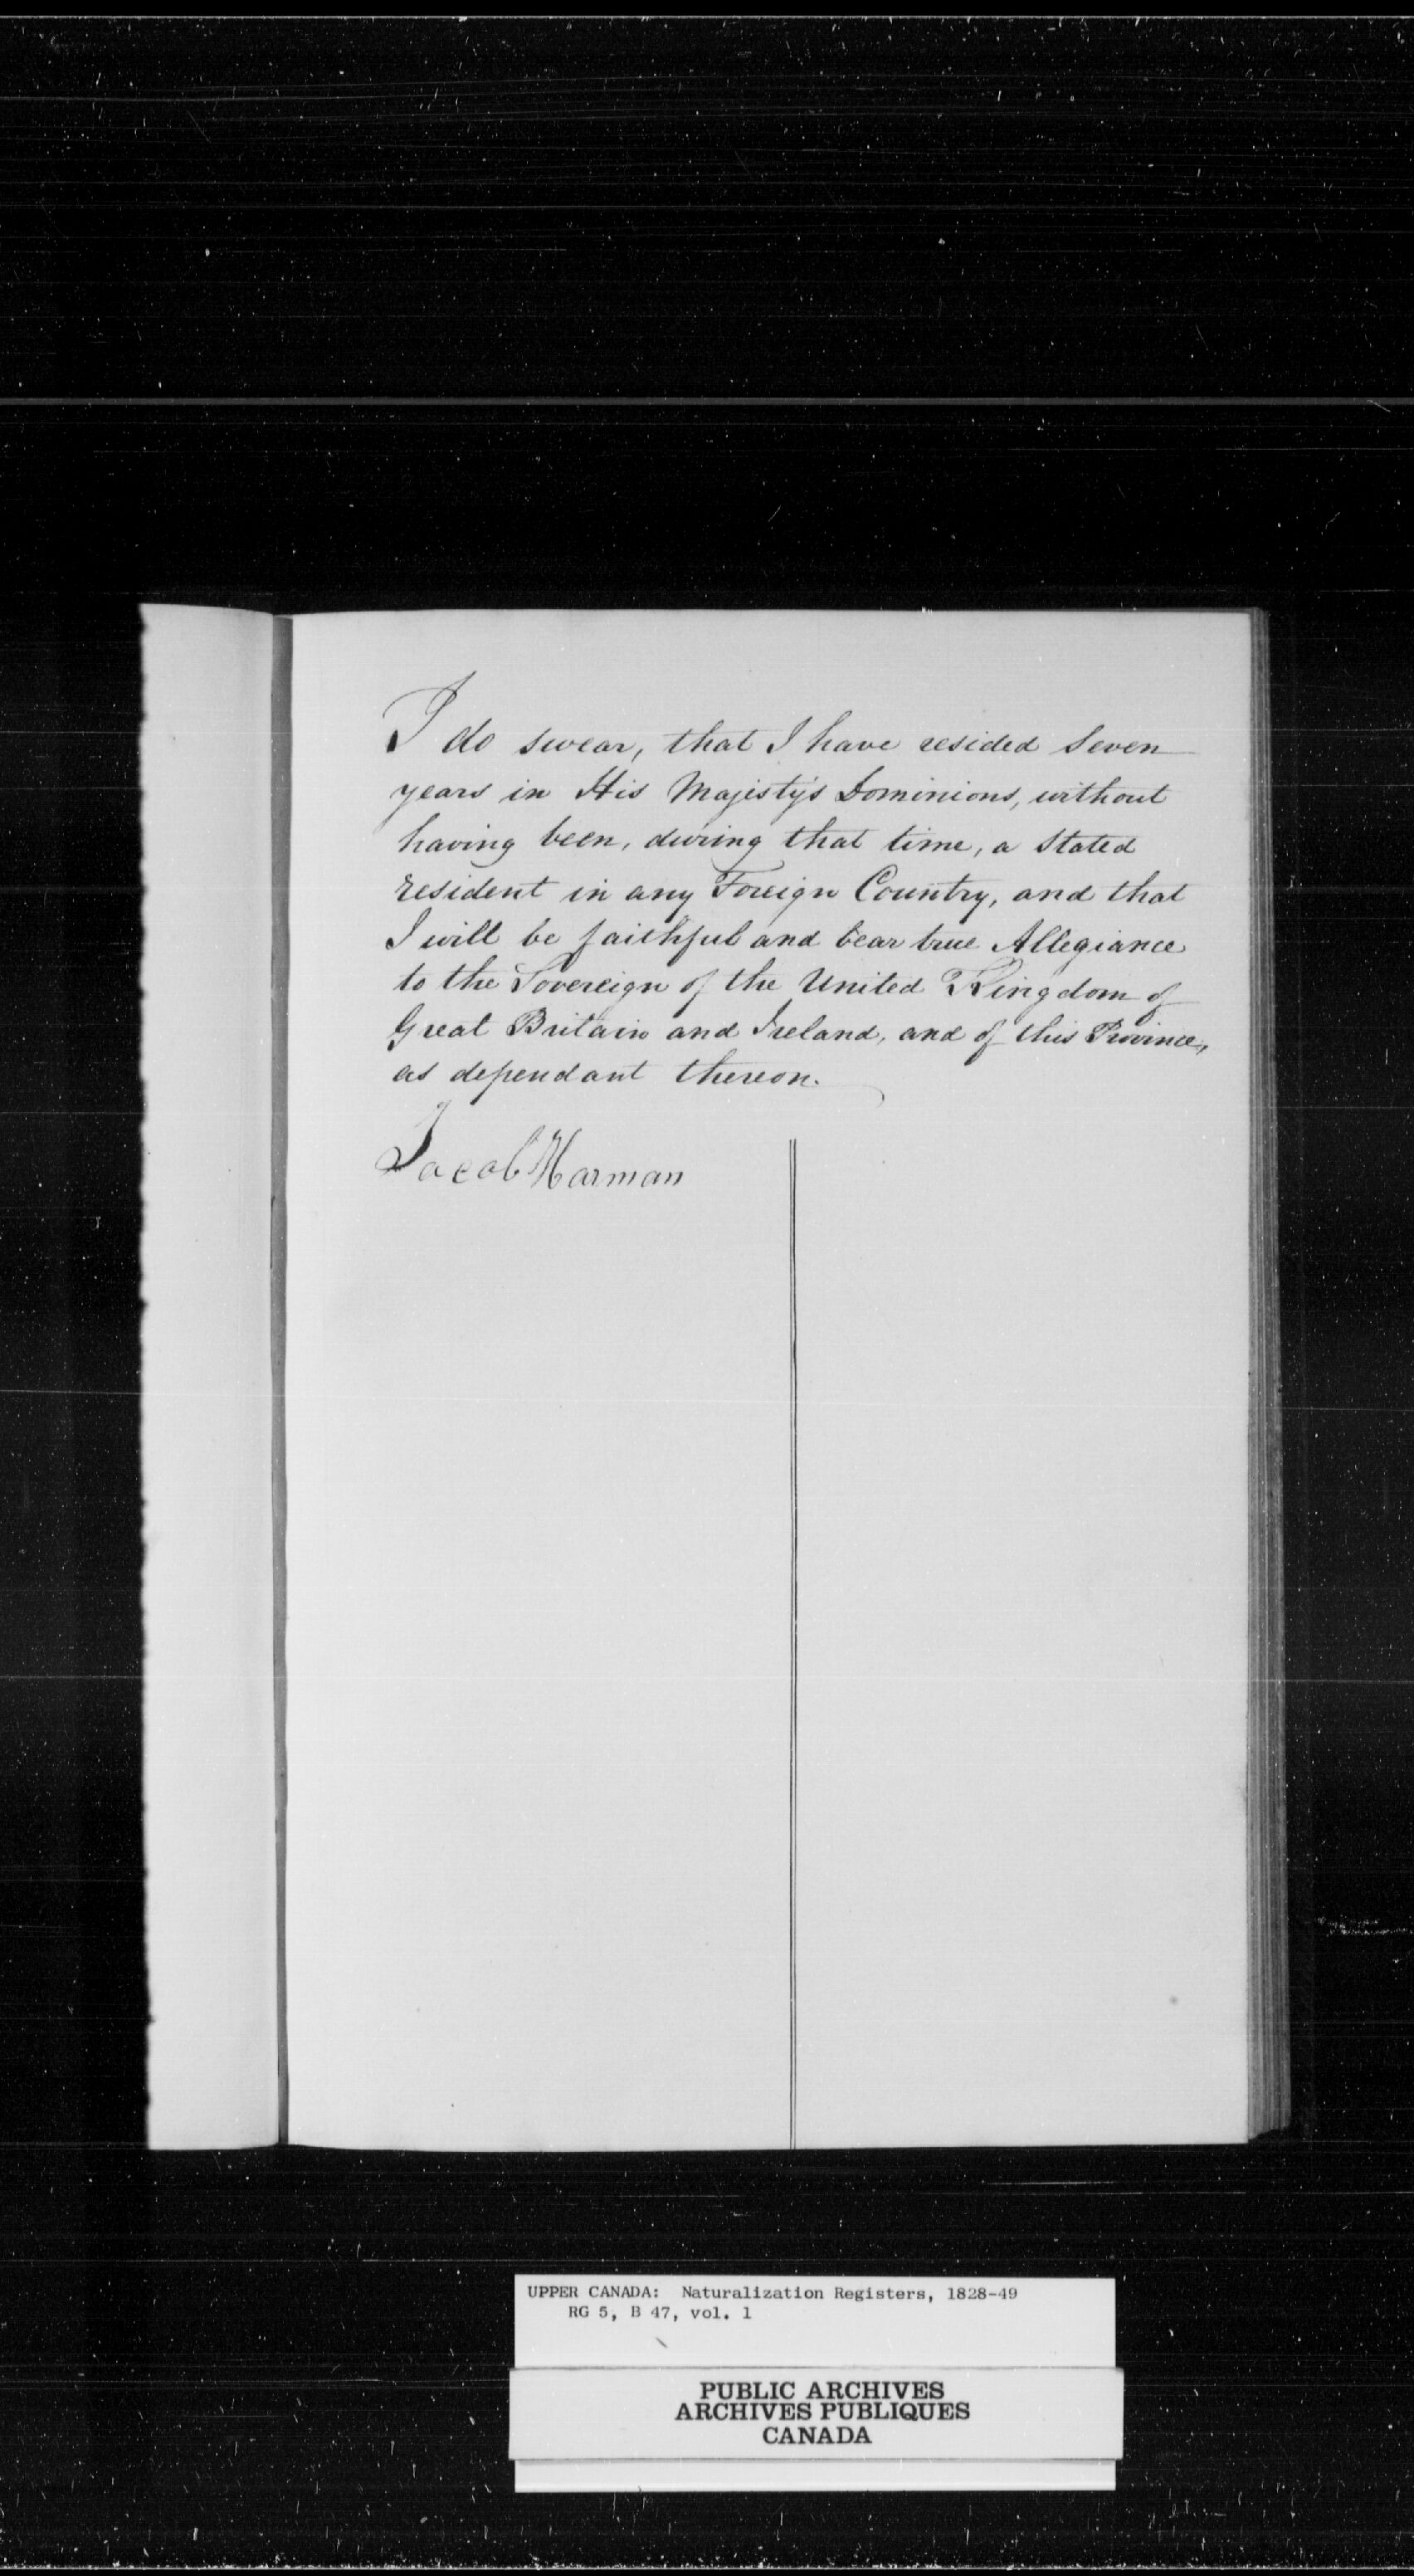 I do swear, that I have resided Seven
years in His Majesty's Dominions, without
having been, during that time, a Stated
resident in any Foreign Country, and that
I will be faithful and bear true Allegiance
to the Sovereign of the United Kingdom of
Great Britain and Ireland, and of this Province,
as dependant thereon.
Jacob Harman
UPPER CANADA: Naturalization Registers, 1828-49
RG 5, B 47, vol. 1
PUBLIC ARCHIVES
ARCHIVES PUBLIQUES
CANADA